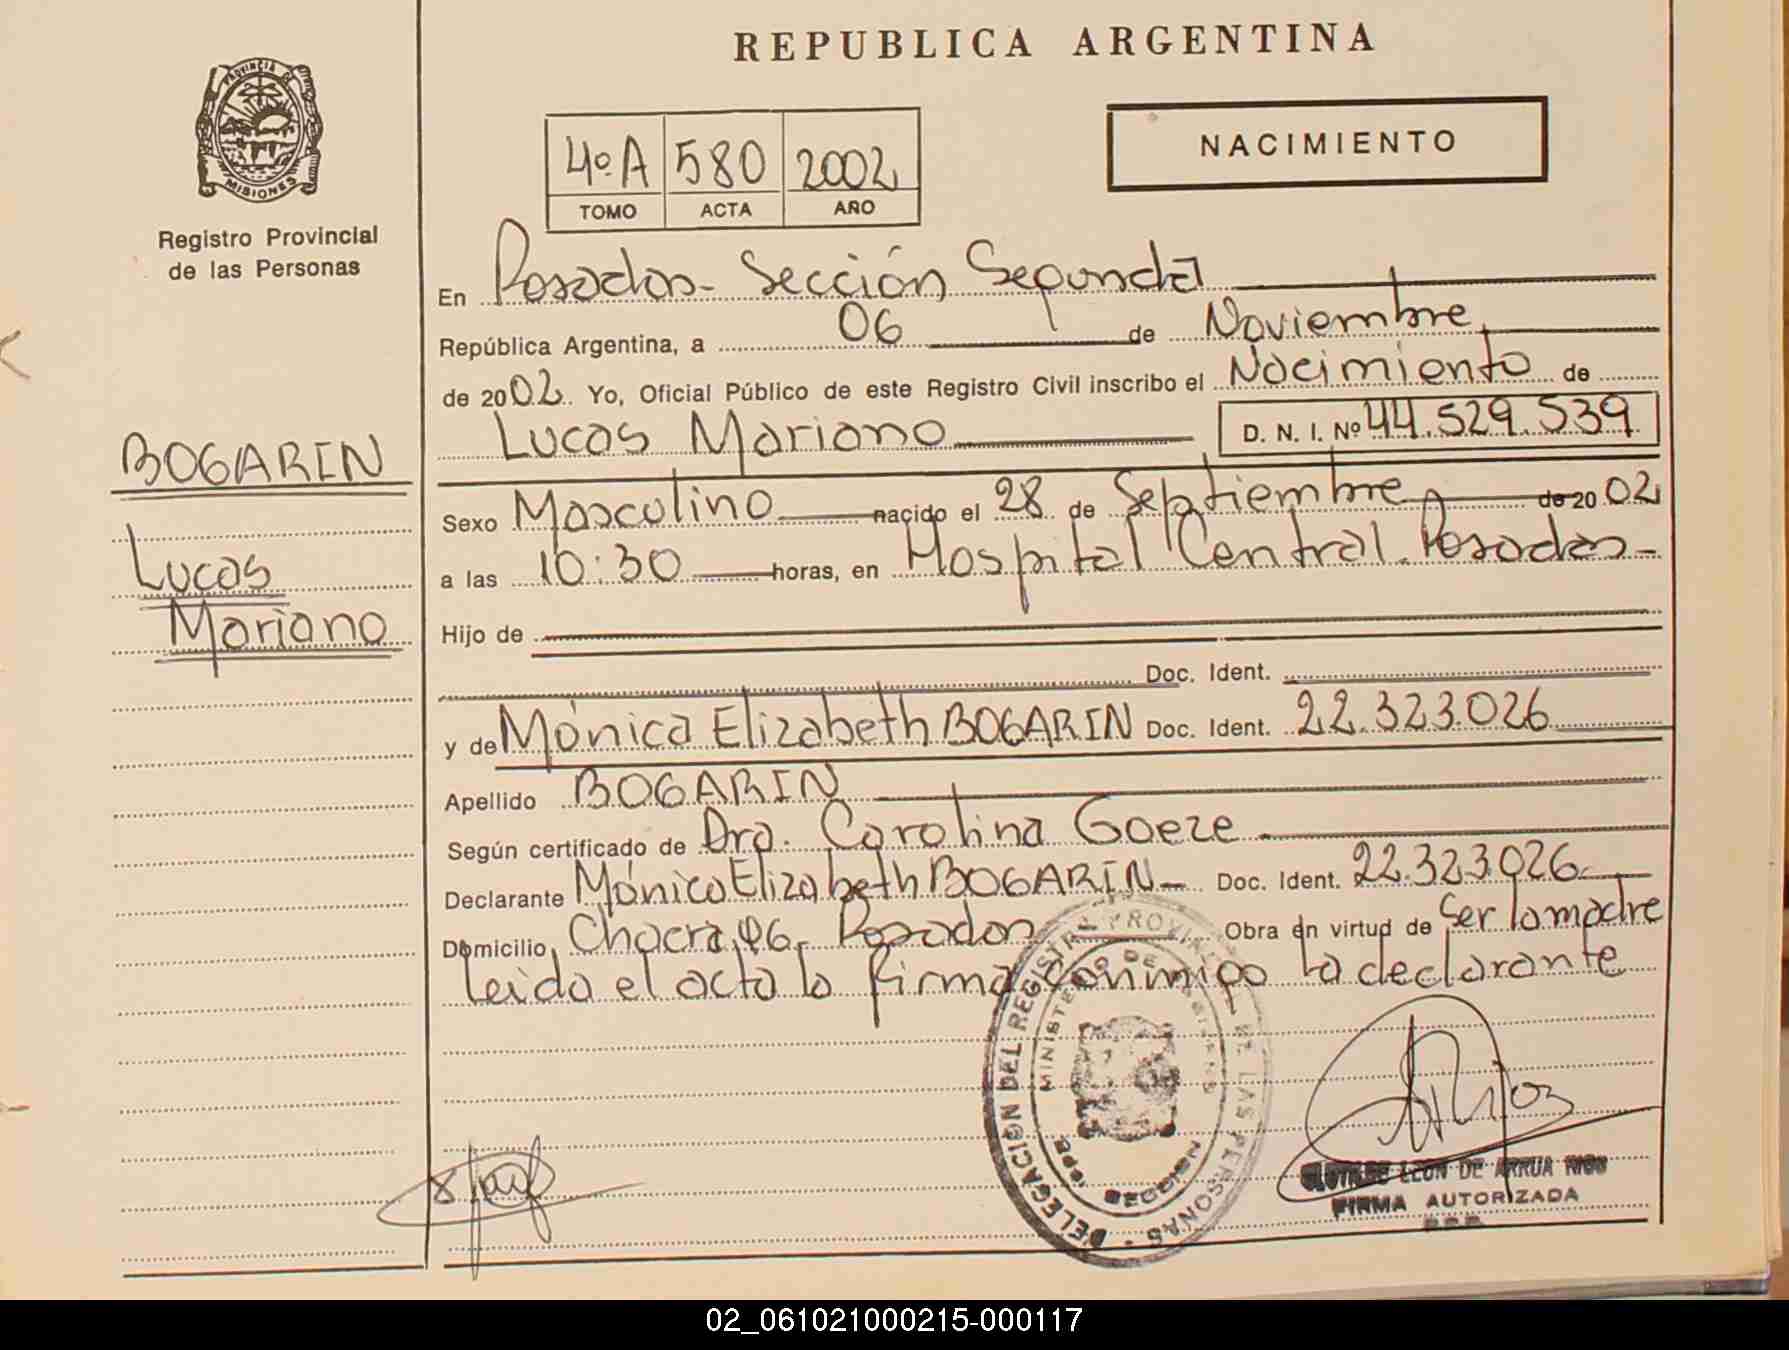 REPUBLICA ARGENTINA
PROVINCIA DE
MISIONES
Registro Provincial
de las Personas
4º A 580 2002
TOMO ACTA AÑO
NACIMIENTO
En Posadas- Sección Segunda
República Argentina, a 06 de Noviembre
de 2002 Yo, Oficial Público de este Registro Civil inscribo el Nacimiento de
Lucas Mariano D. N. I. Nº 44.529.539
BOGARIN
Lucas
Mariano
Sexo Masculino nacido el 28 de Septiembre de 2002
a las 10:30 horas, en Hospital Central. Posadas-
Hijo de
Doc. Ident.
y de Mónica Elizabeth BOGARIN Doc. Ident. 22.323.026
Apellido BOGARIN
Según certificado de Dra. Carolina Goeze
Declarante Mónica Elizabeth BOGARIN- Doc. Ident. 22.323.026
Domicilio Chacra 96- Posadas Obra en virtud de Ser la madre
Leida el acta la firma conmigo la declarante
DELEGACION DEL REGISTRO PROVINCIAL DE LAS PERSONAS -
MINISTERIO DE GOBIERNO
SECCION
LEON DE ARRUA RIOS
FIRMA AUTORIZADA
02_061021000215-000117